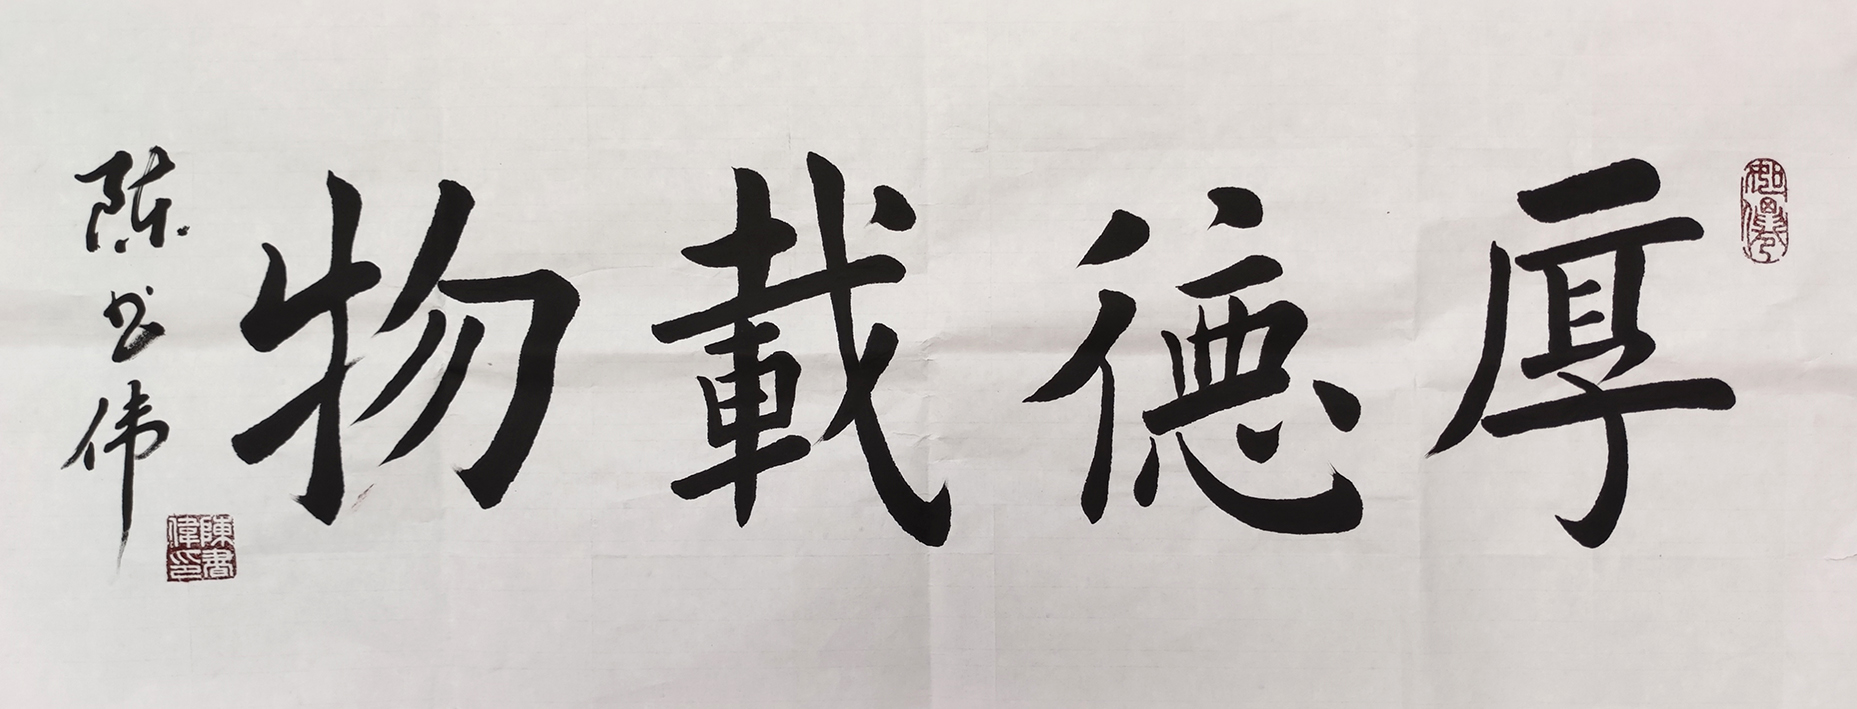 厚德載物
陈书伟
陳書偉印